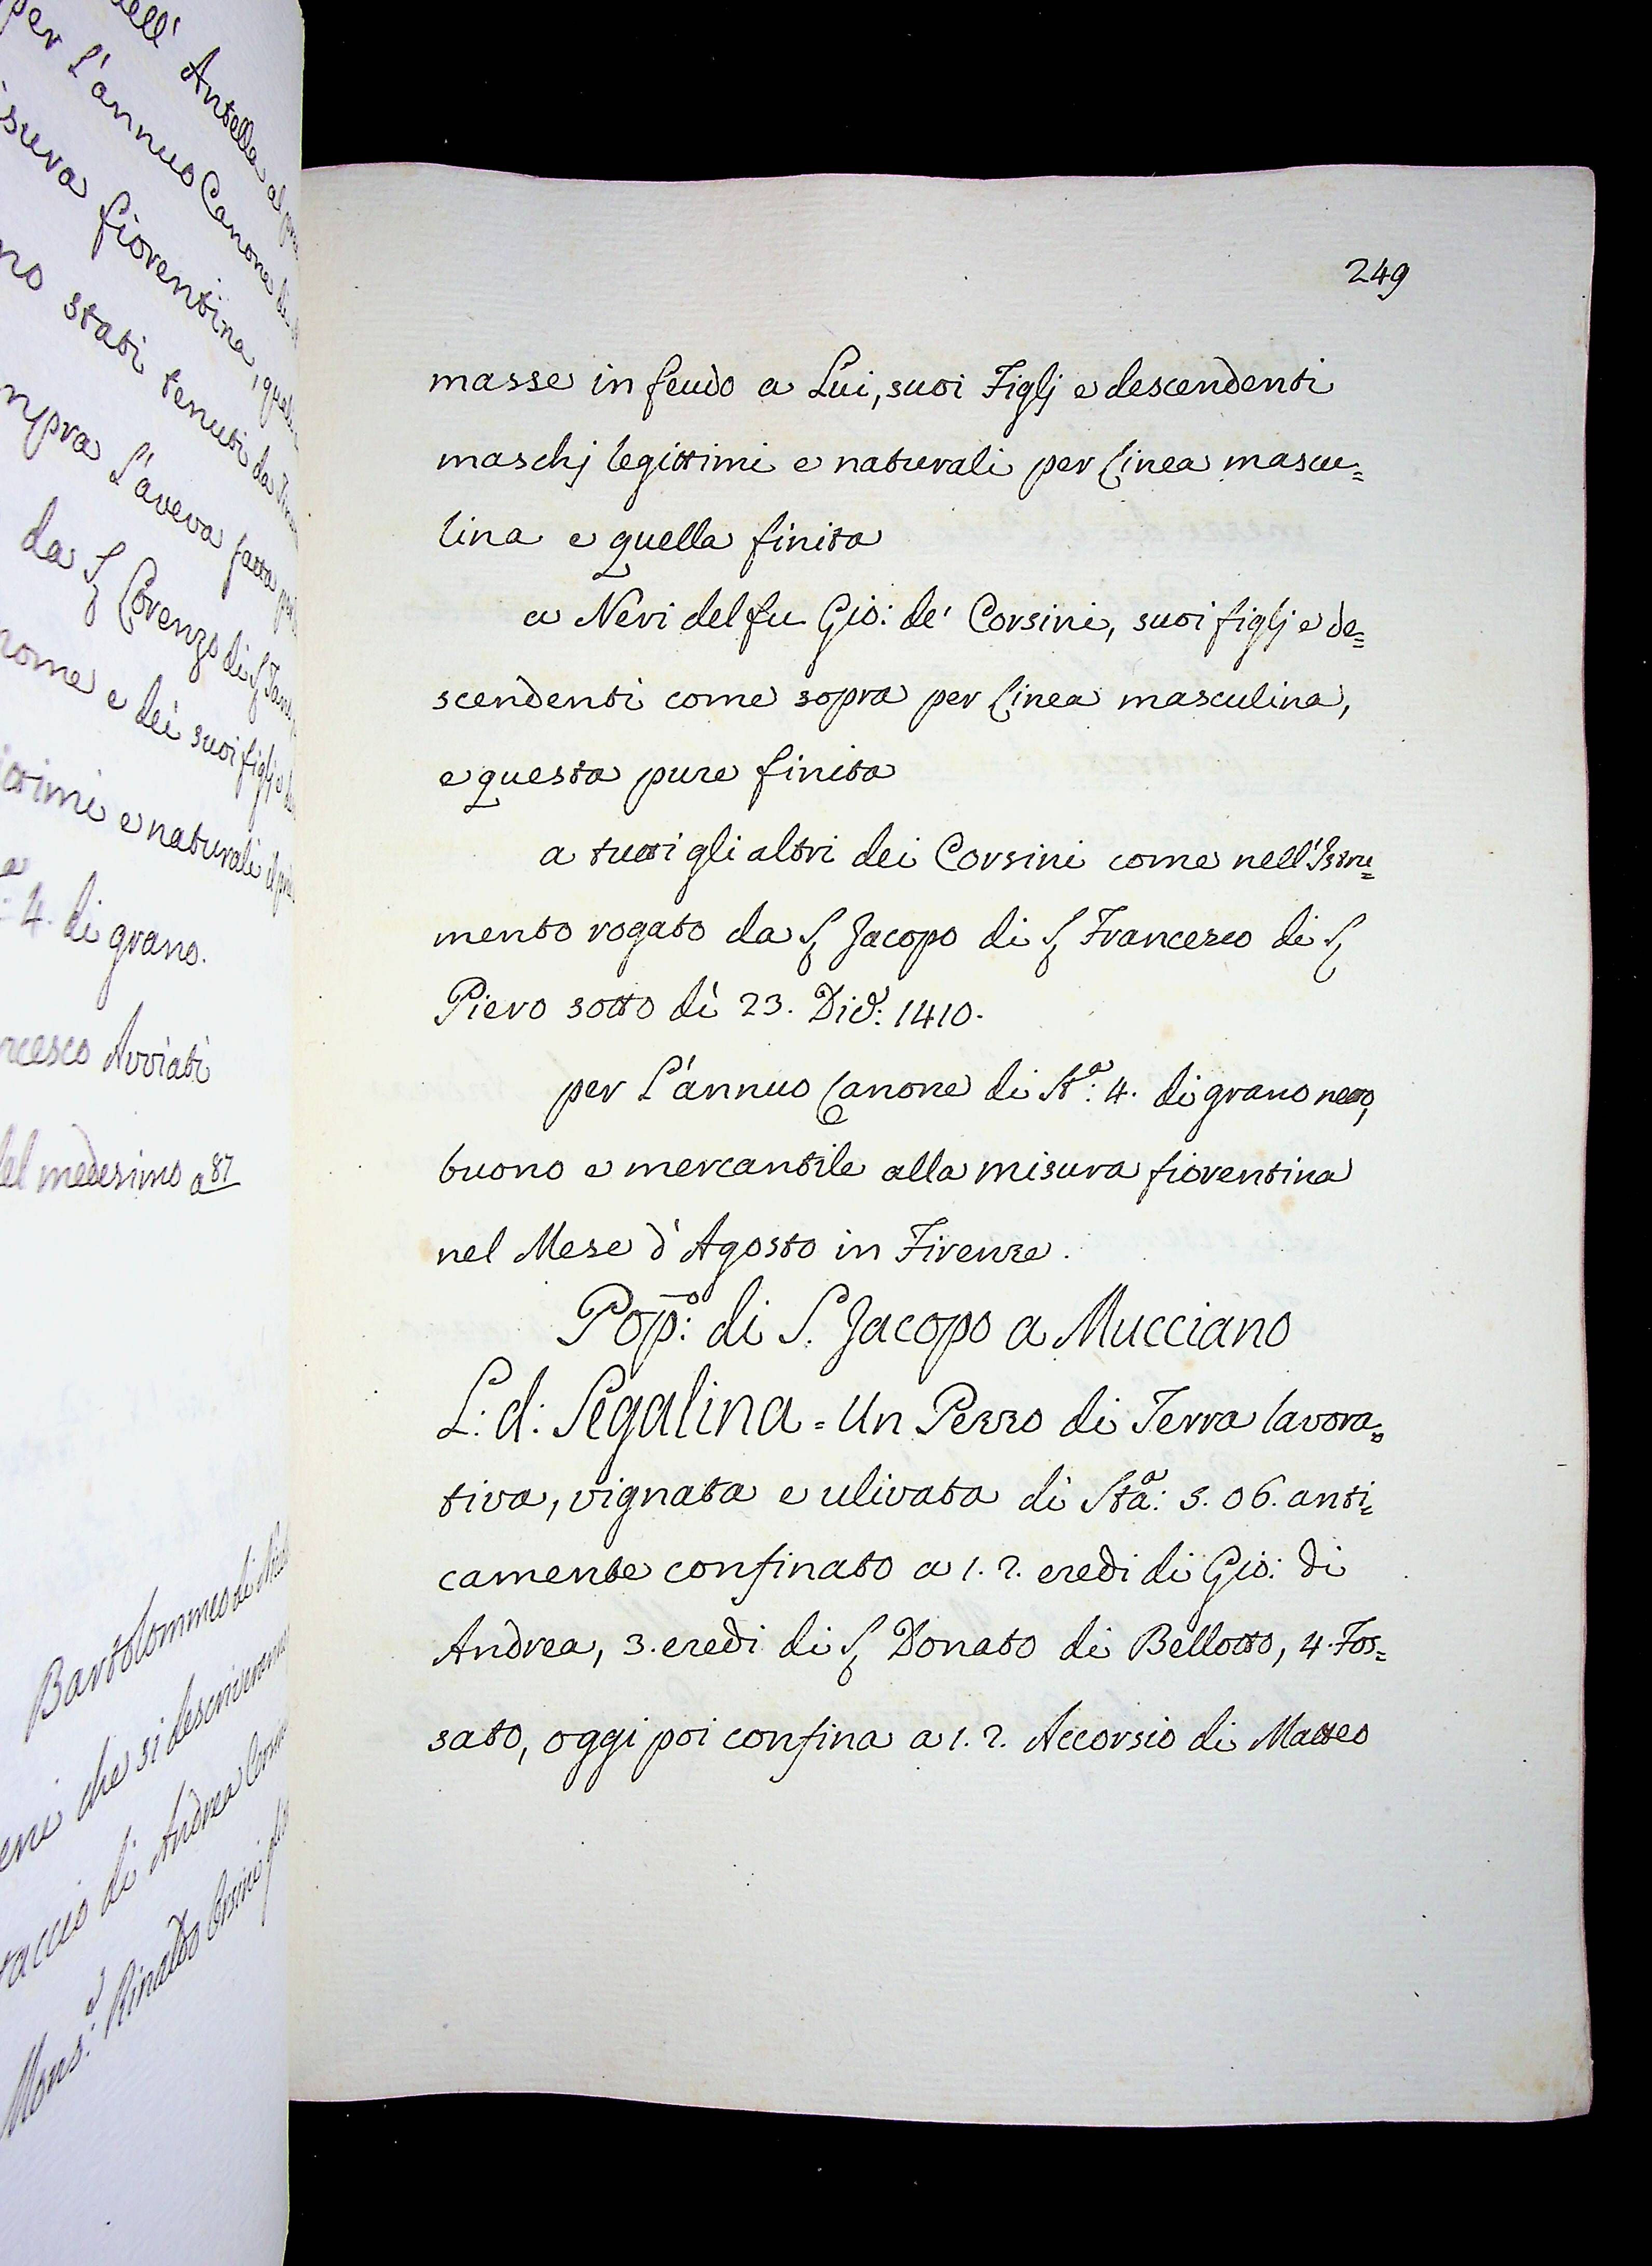 dell' Antella al
per l'annuo Canone di
sura fiorentina, quali
no stati tenuti da
mpra l'aveva fatta
da S. Lorenzo di S.
nome e dei suoi figlj e
ittimi e naturali
4. di grano.
ncesco Arriati
del medesimo a 87
Bartolommeo di
eni che si descriveranno
raccio di Andrea
Mons.e Rinaldo Corsini
249
masse in feudo a Lui, suoi Figlj e descendenti
maschj legittimi e naturali per linea mascu=
lina e quella finita
a Neri del fu Gio: de' Corsini, suoi figlj e de=
scendenti come sopra per linea masculina,
e questa pure finita
a tutti gli altri dei Corsini come nell'Istru=
mento rogato da S. Jacopo di S. Francesco di S.
Piero sotto dì 23. Dic.e: 1410.
per l'annuo Canone di St.a: 4. di grano netto,
buono e mercantile alla misura fiorentina
nel Mese d'Agosto in Firenze.
Pop.o: di S. Jacopo a Mucciano
L: d: Segalina = Un Pezzo di Terra lavora=
tiva, vignata e ulivata di Sta.a: 5. 06. anti=
camente confinato a 1. 2. eredi di Gio: di
Andrea, 3. eredi di S. Donato di Bellotto, 4. Fos=
sato, oggi poi confina a 1. 2. Accorsio di Matteo